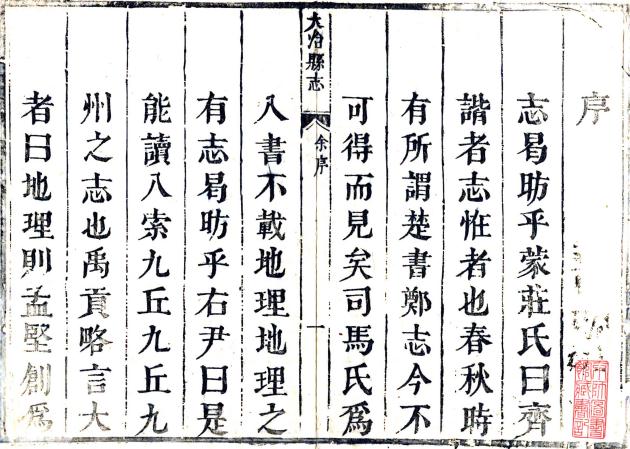 序
志曷昉乎蒙莊氏曰齊
諧者志恠者也春秋時
有所謂楚書鄭志今不
可得而見矣司馬氏爲
大冶縣志
余序
一
八書不載地理地理之
有志曷昉乎右尹曰是
能讀八索九丘九丘九
州之志也禹貢略言大
者曰地理則孟堅創爲